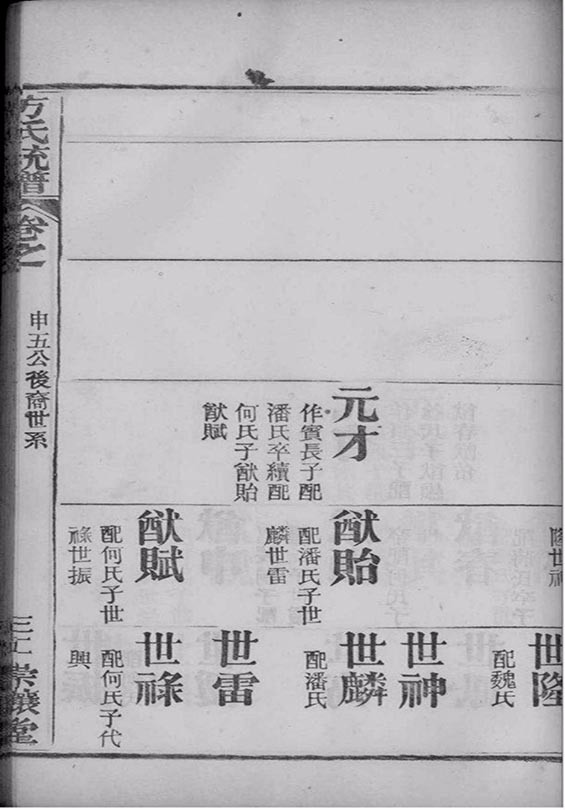 元才
作賓長子配
潘氏卒續配
何氏子猷貽
猷賦
隆世神
猷貽
配潘氏子世
麟世雷
猷賦
配何氏子世
祿世振
世隆
配魏氏
世神
世麟
配潘氏
世雷
世祿
配何氏子代
興
方氏統譜
卷之
申五公後裔世系
堂